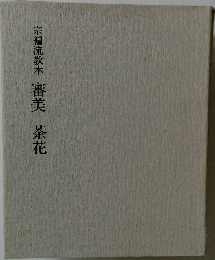 宗徧流教本 審美 茶花